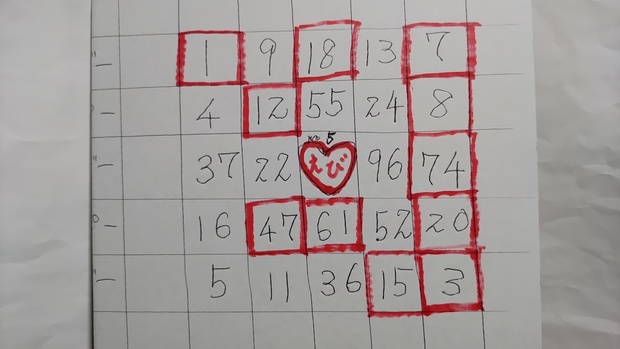 1 9 18 13 7
4 12 55 24 8
37 22 えび 96 74
16 47 61 52 20
5 11 36 15 3